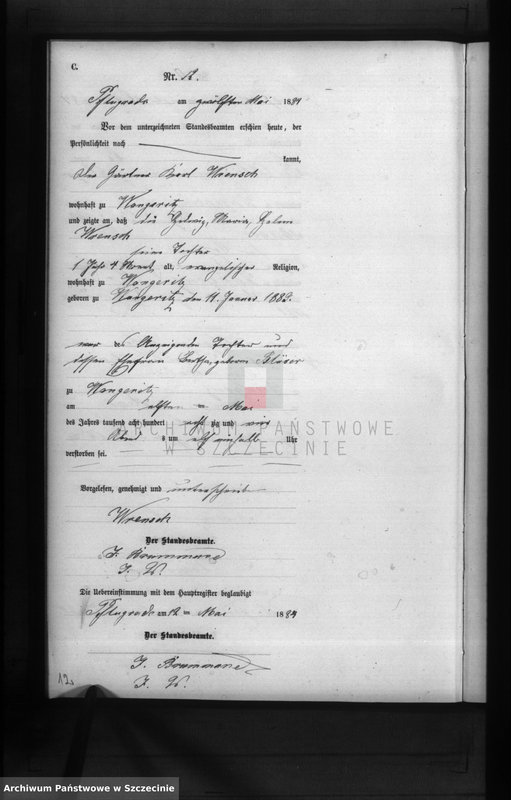 C.
Nr. 12.
Pflugrade am zwölften Mai 1884
Vor dem unterzeichneten Standesbeamten erschien heute, der
Persönlichkeit nach
kannt,
der Gärtner Karl Wrensch
wohnhaft zu Wangeritz
und zeigte an, daß die Hedwig, Maria, Helene
Wrensch
seine Tochter
1 Jahr 4 Monat alt, evangelischer Religion,
wohnhaft zu Wangeritz
geboren zu Wangeritz den 11. Januar 1883.
war des Anzeigenden Tochter und
dessen Ehefrau Bertha, geboren Bläser
zu Wangeritz
am elften Mai
des Jahres tausend acht hundert achtzig und vier
Abends um elf Uhr
verstorben sei.
Vorgelesen, genehmigt und unterschrieben
Wrensch
Der Standesbeamte.
J. Brummund
J. V.
Die Uebereinstimmung mit dem Hauptregister beglaubigt
Pflugrade am 12 Mai 1884
Der Standesbeamte.
J. Brummund
J. V.
12.
ARCHIWUM PAŃSTWOWE
W SZCZECINIE
Archiwum Państwowe w Szczecinie